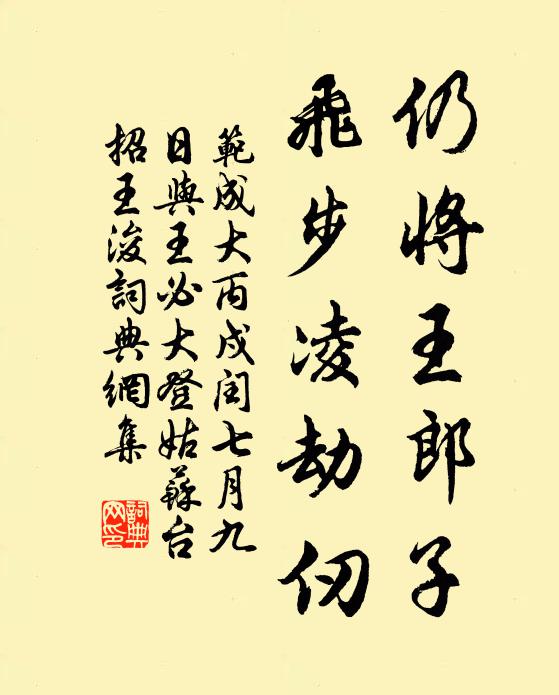 仍將王郎子
飛步凌劫仞
範成大丙戌閏七月九
日與王必大登姑蘇台
招王浚詞典網集
詞典
网印